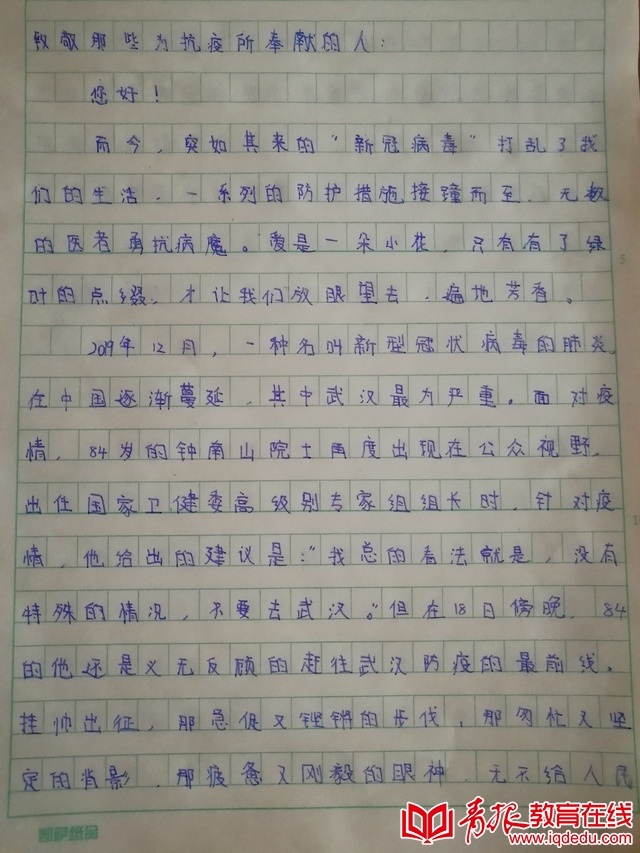 致敬那些为抗疫所奉献的人：
您好！
而今，突如其来的“新冠病毒”打乱了我
们的生活，一系列的防护措施接踵而至，无数
的医者勇抗病魔。爱是一朵小花，只有有了绿
叶的点缀，才让我们放眼望去，遍地芳香。
2019年12月，一种名叫新型冠状病毒的肺炎
在中国逐渐蔓延，其中武汉最为严重。面对疫
情，84岁的钟南山院士再度出现在公众视野，
出任国家卫健委高级别专家组组长时，针对疫
情，他给出的建议是：“我总的看法就是，没有
特殊的情况，不要去武汉。”但在18日傍晚，84
的他还是义无反顾的赶往武汉防疫的最前线。
挂帅出征，那急促又铿锵的步伐，那匆忙又坚
定的背影，那疲惫又刚毅的眼神，无不给人民
凯萨纸品
青报教育在线
www.iqdedu.com